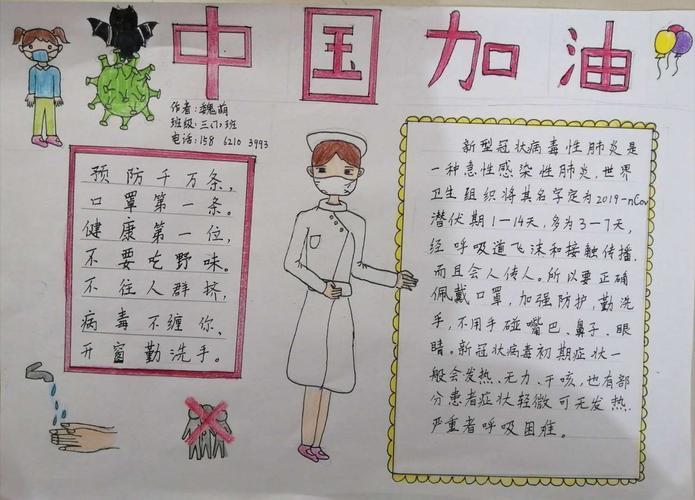 中国加油
作者:魏萌
班级:三(1)班
电话:158 6210 3993
预防千万条,
口罩第一条。
健康第一位,
不要吃野味。
不往人群挤,
病毒不缠你、
开窗勤洗手。
新型冠状病毒性肺炎是
一种急性感染性肺炎,世界
卫生组织将其名字定为2019-nCov
潜伏期1—14天,多为3—7天,
经呼吸道飞沫和接触传播.
而且会人传人。所以要正确
佩戴口罩,加强防护,勤洗
手,不用手碰嘴巴、鼻子、眼
睛。新冠状病毒初期症状一
般会发热、无力、干咳,也有部
分患者症状轻微可无发热.
严重者呼吸困难。